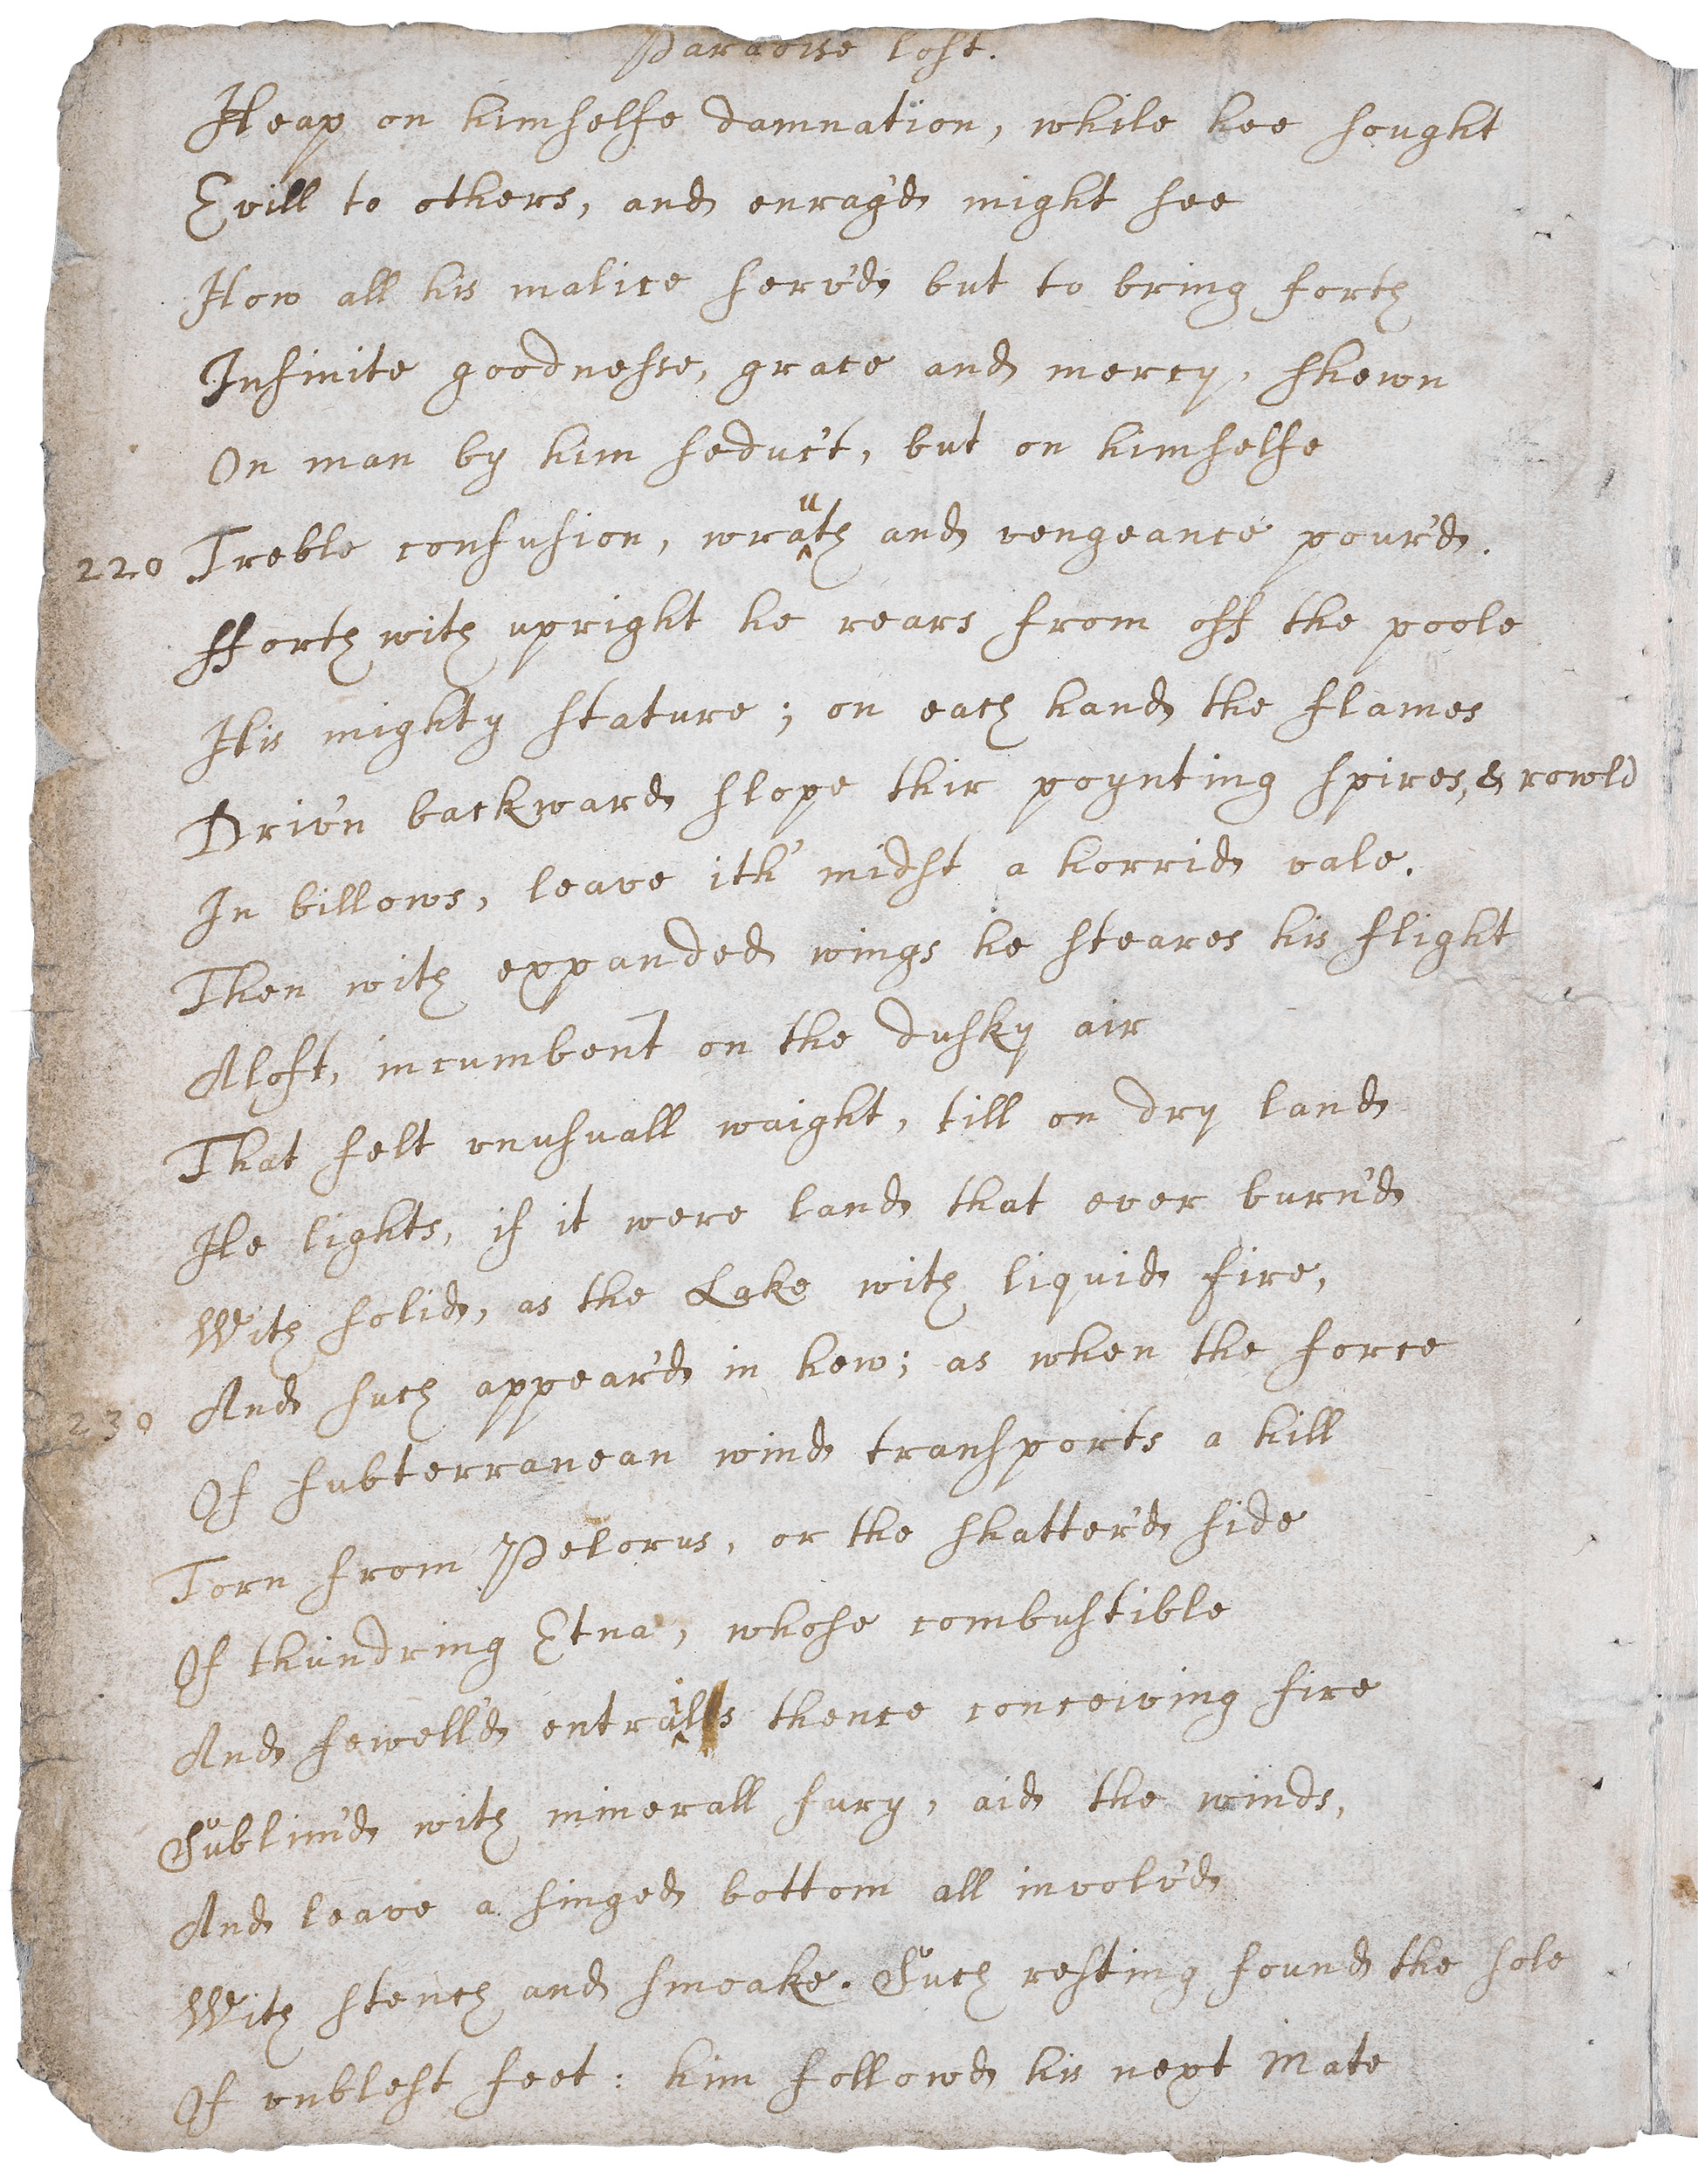 Paradise lost.
Heap on himselfe damnation, while hee sought
Evill to others, and enrag'd might see
How all his malice serv'd but to bring forth
Infinite goodnesse, grace and mercy, shewn
On man by him seduc't, but on himselfe
220 Treble confusion, wrauth and vengeance pour'd.
fforth with upright he rears from off the poole
His mighty stature; on each hand the flames
Driv'n backward slope thir poynting spires, & rowld
In billows, leave ith' midst a horrid vale.
Then with expanded wings he steares his flight
Aloft, incumbent on the dusky air
That felt vnusuall waight, till on dry land
He lights, if it were land that ever burn'd
With solid, as the Lake with liquid fire,
230 And such appear'd in hew; as when the force
Of subterranean wind transports a hill
Torn from Pelorus, or the shatter'd side
Of thundring Etna, whose combustible
And fewell'd entrails thence conceiving fire
Sublim'd with minerall fury, aid the winds,
And leave a singed bottom all involv'd
With stench and smoake. Such resting found the sole
Of vnblest feet: him followd his next Mate